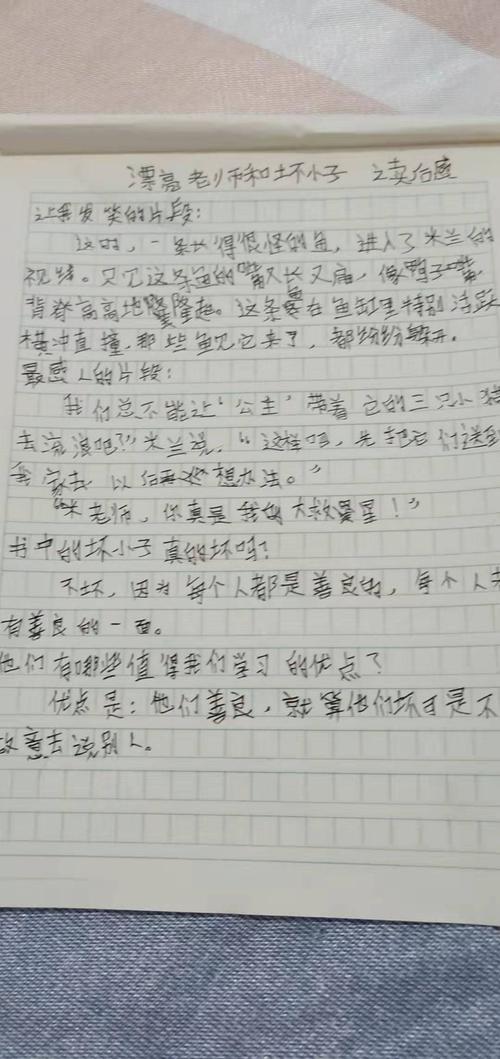 漂亮老师和坏小子 之读后感
让我发笑的片段：
这时，一条长得很怪的鱼，进入了米兰的
视线。只见这条鱼的嘴又长又扁，像鸭子嘴，
背脊高高地隆起。这条鱼在鱼缸里特别活跃
横冲直撞，那些鱼见它来了，都纷纷躲开。
最感人的片段：
我们总不能让“公主”带着它的三只小猫
去流浪吧？”米兰说，“这样吧，先把它们送到
我家去 以后再想办法。”
“米老师，你真是我的大救星！”
书中的坏小子真的坏吗？
不坏，因为每个人都是善良的，每个人
有善良的一面。
他们有哪些值得我们学习的优点？
优点是：他们善良，就算他们坏可是不
故意去说别人。